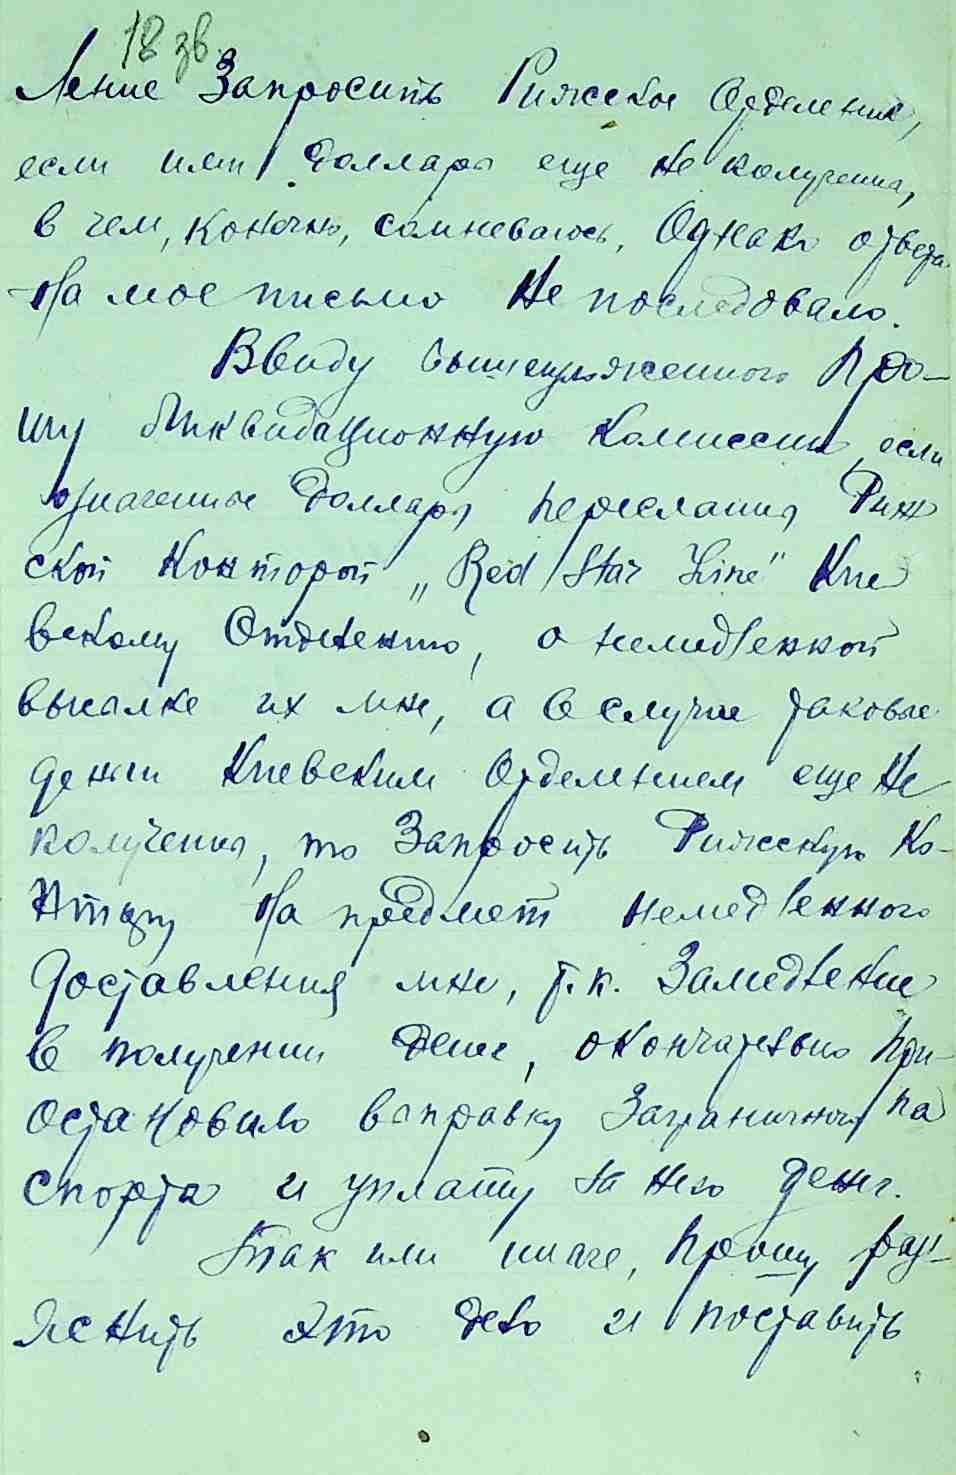 18 зв.
ление Запросить Рижское Отделение,
если ими доллары еще не получены,
в чем, конечно, сомневаюсь. Однако ответа
на мое письмо не последовало.
Ввиду вышеизложенного про-
шу Ликвидационную Комиссию, если
означенные доллары пересланы Риж
ской Конторой „Red Star Line" Кие
вскому Отделению, о немедленной
высылке их мне, а в случае таковые
деньги Киевским Отделением еще не
получены, то Запросить Рижскую Ко-
нтору на предмет немедленного
доставления мне, т.к. Замедление
в получении денег, окончательно при-
остановило выправку Заграничного па
спорта и уплату за него денег.
Так или иначе, прошу раз'-
яснить это дело и поставить